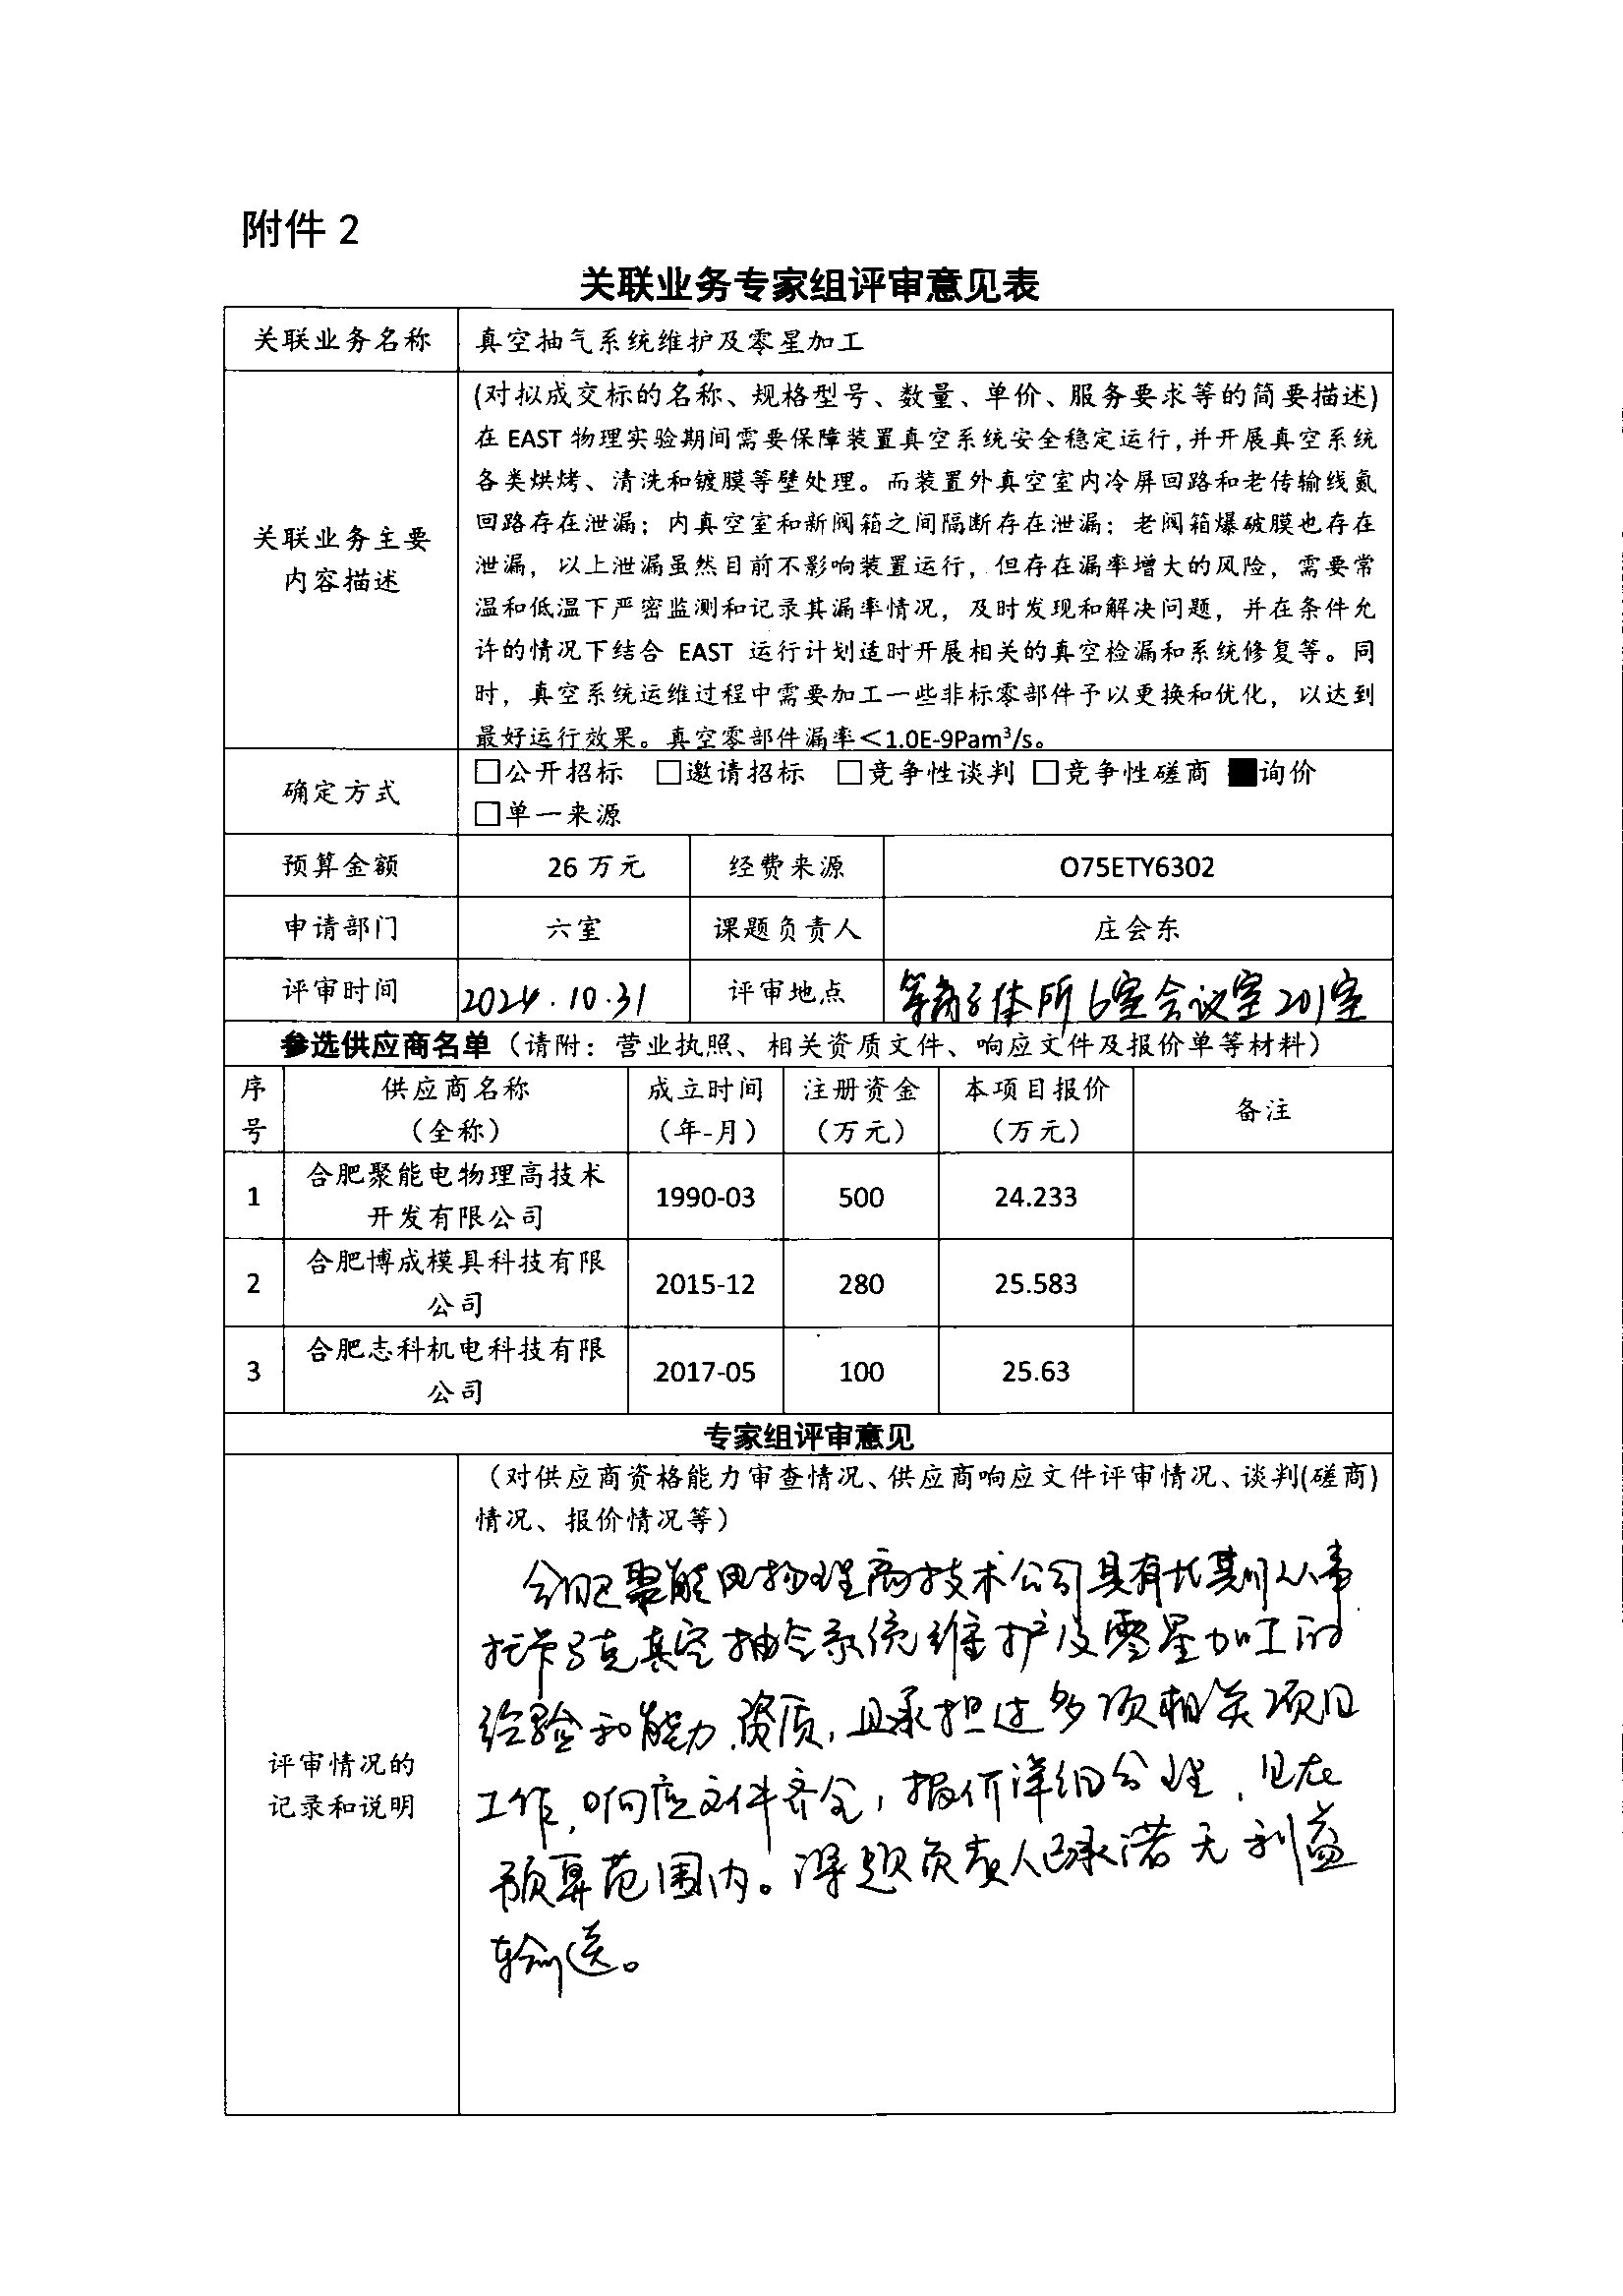 附件 2
关联业务专家组评审意见表
关联业务名称 真空抽气系统维护及零星加工
关联业务主要
内容描述
(对拟成交标的名称、规格型号、数量、单价、服务要求等的简要描述)
在 EAST 物理实验期间需要保障装置真空系统安全稳定运行,并开展真空系统
各类烘烤、清洗和镀膜等壁处理。而装置外真空室内冷屏回路和老传输线氦
回路存在泄漏；内真空室和新阀箱之间隔断存在泄漏；老阀箱爆破膜也存在
泄漏，以上泄漏虽然目前不影响装置运行，但存在漏率增大的风险，需要常
温和低温下严密监测和记录其漏率情况，及时发现和解决问题，并在条件允
许的情况下结合 EAST 运行计划适时开展相关的真空检漏和系统修复等。同
时，真空系统运维过程中需要加工一些非标零部件予以更换和优化，以达到
最好运行效果。真空零部件漏率＜1.0E-9Pam³/s。
确定方式
□公开招标 □邀请招标 □竞争性谈判 □竞争性磋商 ■询价
□单一来源
预算金额 26 万元 经费来源 O75ETY6302
申请部门 六室 课题负责人 庄会东
评审时间 2024.10.31 评审地点 等离子体所6室会议室201室
参选供应商名单（请附：营业执照、相关资质文件、响应文件及报价单等材料）
序 供应商名称 成立时间 注册资金 本项目报价 备注
号 （全称） （年-月） （万元） （万元）
合肥聚能电物理高技术
1 1990-03 500 24.233
开发有限公司
合肥博成模具科技有限
2 2015-12 280 25.583
公司
合肥志科机电科技有限
3 2017-05 100 25.63
公司
专家组评审意见
评审情况的
记录和说明
（对供应商资格能力审查情况、供应商响应文件评审情况、谈判(磋商)
情况、报价情况等）
合肥聚能电物理高技术公司具有长期从事
托卡马克真空抽气系统维护及零星加工的
经验和能力、资质，且承担过多项相关项目
工作，响应文件齐全，报价详细合理，且在
预算范围内。课题负责人已承诺无利益
输送。